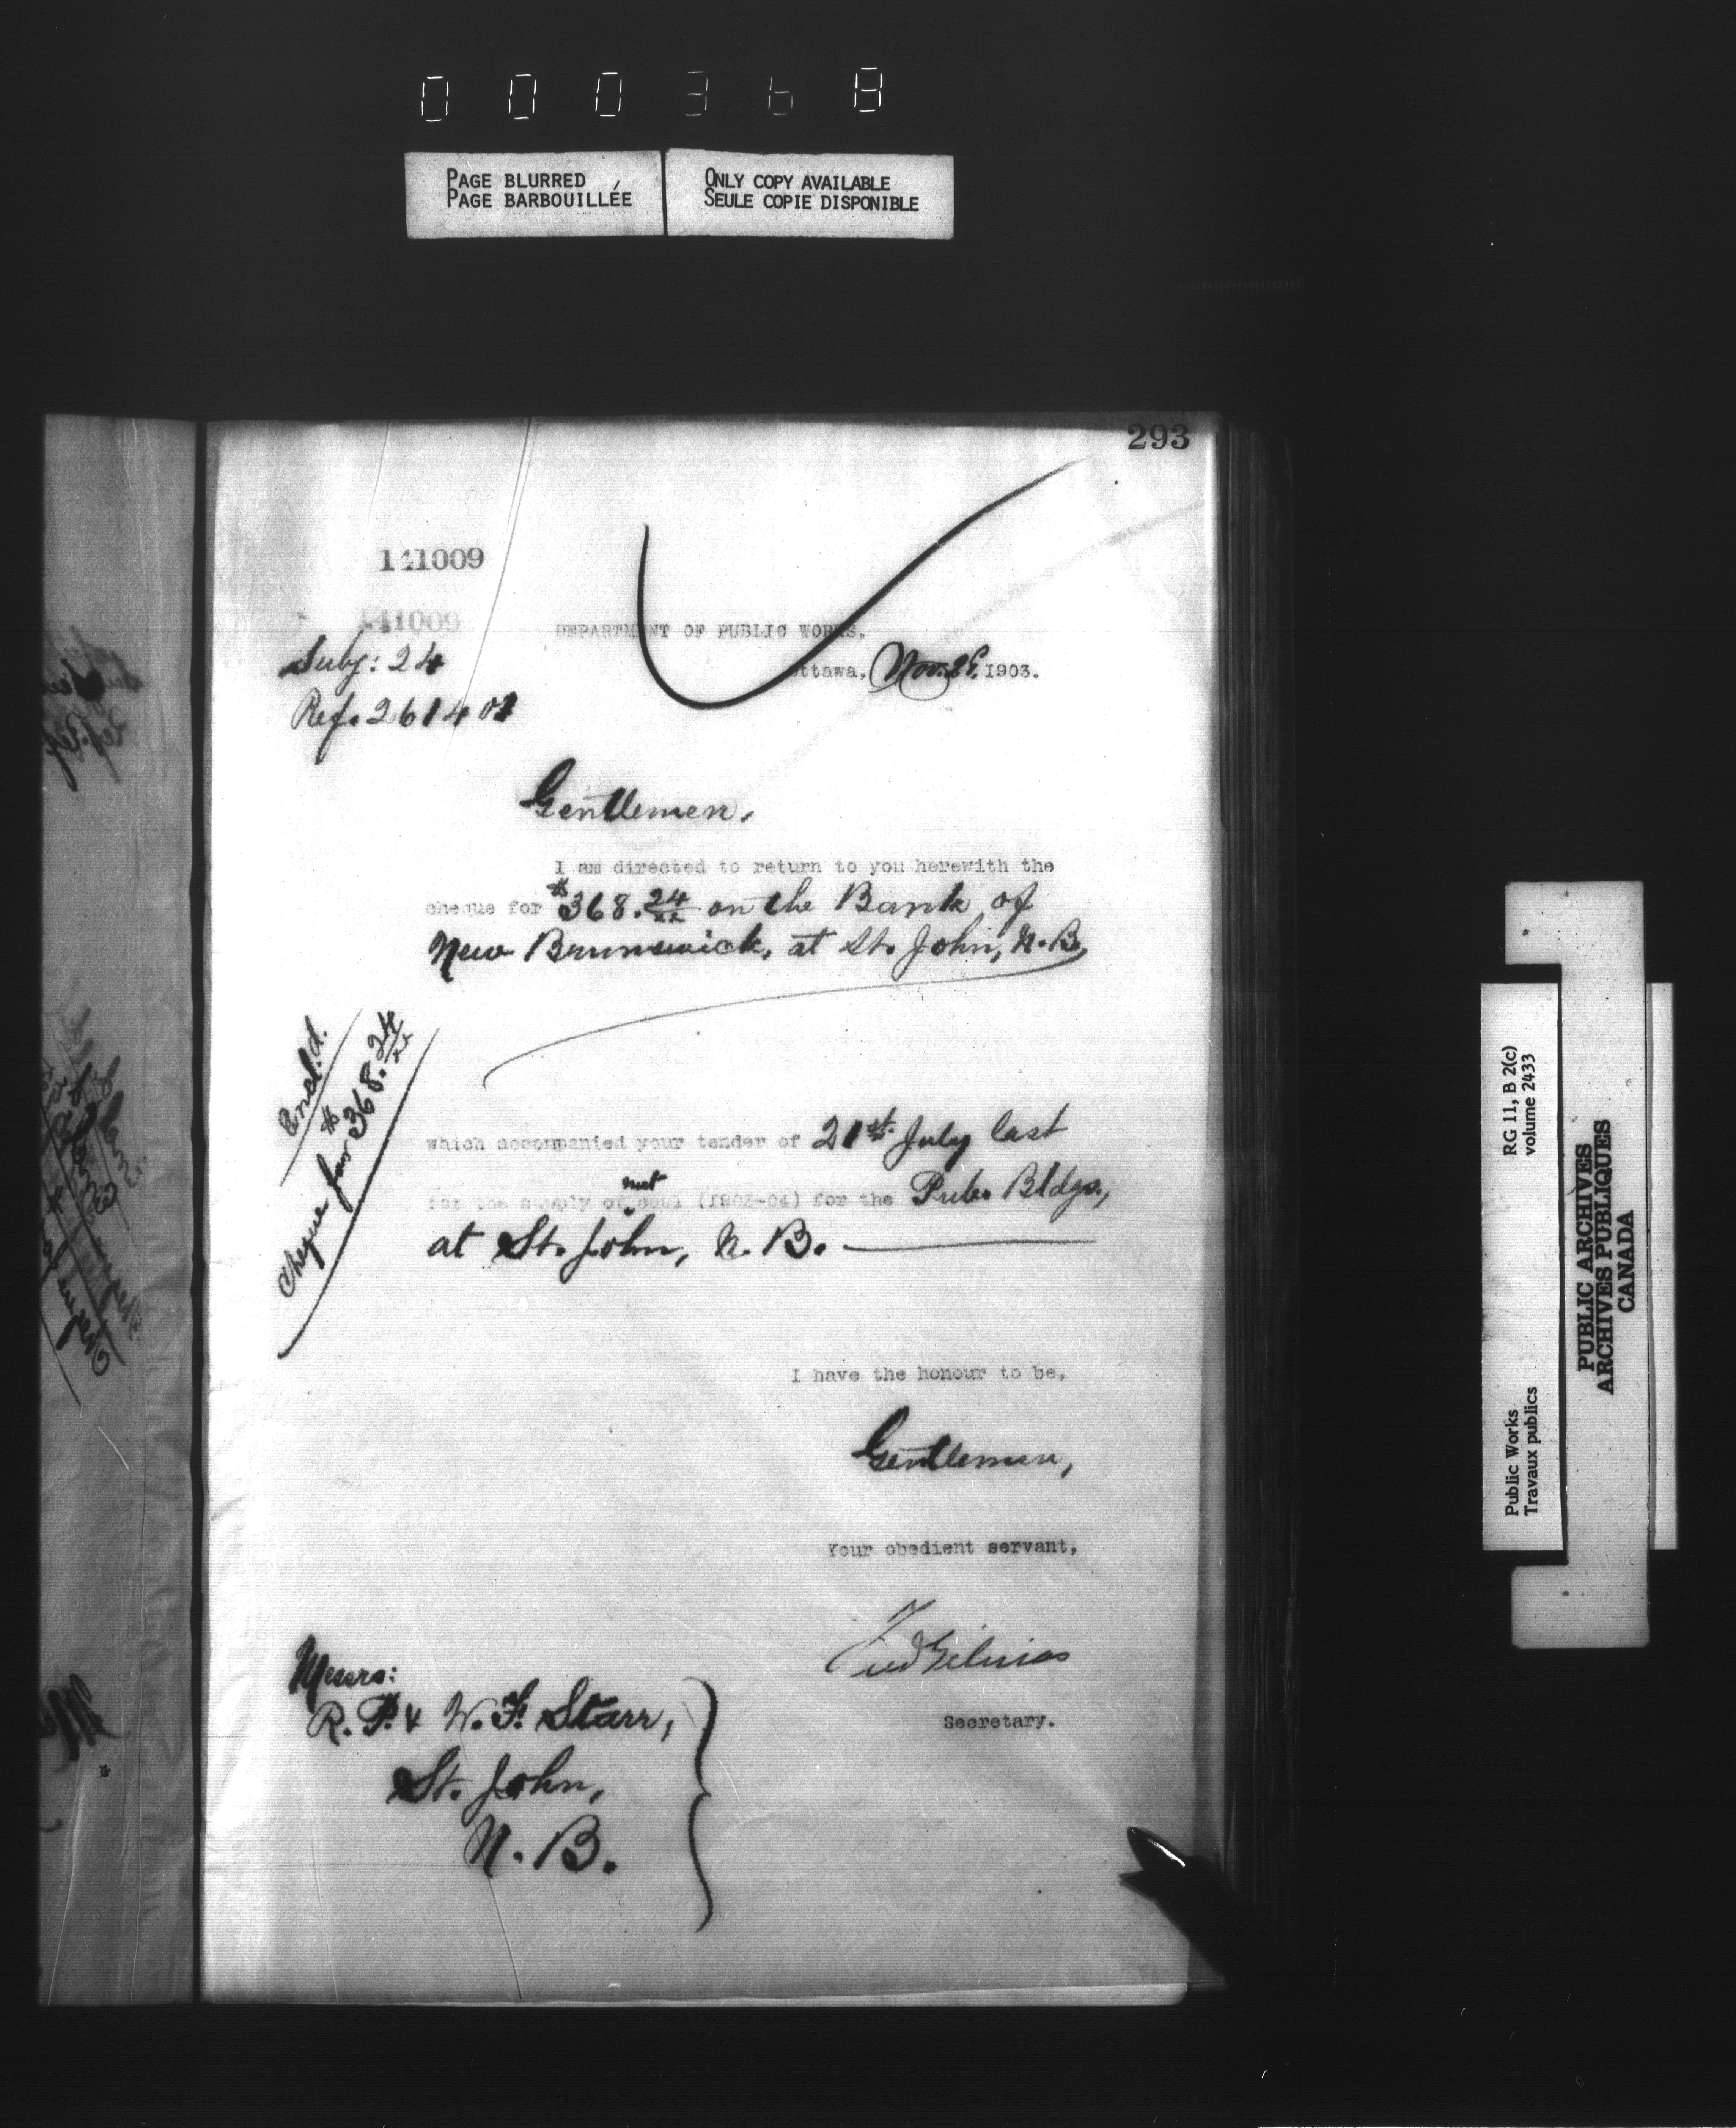 000368
PAGE BLURRED
PAGE BARBOUILLÉE
ONLY COPY AVAILABLE
SEULE COPIE DISPONIBLE
293
141009
141009
Subj: 24
Ref. 261401
DEPARTMENT OF PUBLIC WORKS.
Ottawa, Nov. 1903.
Gentlemen,
I am directed to return to you herewith the
cheque for $368.24/xx on the Bank of
New Brunswick, at St. John, N.B,
Encl.d.
Cheque for $368.24/xx
which accompanied your tender of 21st July last
nut
for the supply of coal (1903-04) for the Pub. Bldgs.,
at St. John, N. B.
I have the honour to be,
Gentlemen,
Your obedient servant,
Fred Gélinas
Secretary.
Messrs:
R. P. & W. F. Starr,
St. John,
N. B.
RG 11, B 2(c)
volume 2433
Public Works
Travaux publics
PUBLIC ARCHIVES
ARCHIVES PUBLIQUES
CANADA